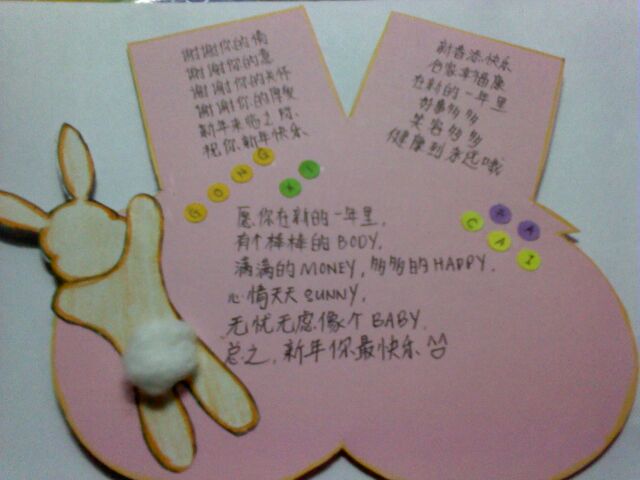 谢谢你的情
谢谢你的意
谢谢你的关怀
谢谢你的厚爱
新年来临之际
祝你新年快乐
新春添快乐
合家享福康
在新的一年里
好事多多
笑容多多
健康到永远哦
GONG
XI
FA
CAI
愿你在新的一年里,
有个棒棒的BODY,
满满的MONEY,多多的HAPPY,
心情天天SUNNY,
无忧无虑像个BABY.
总之,新年你最快乐